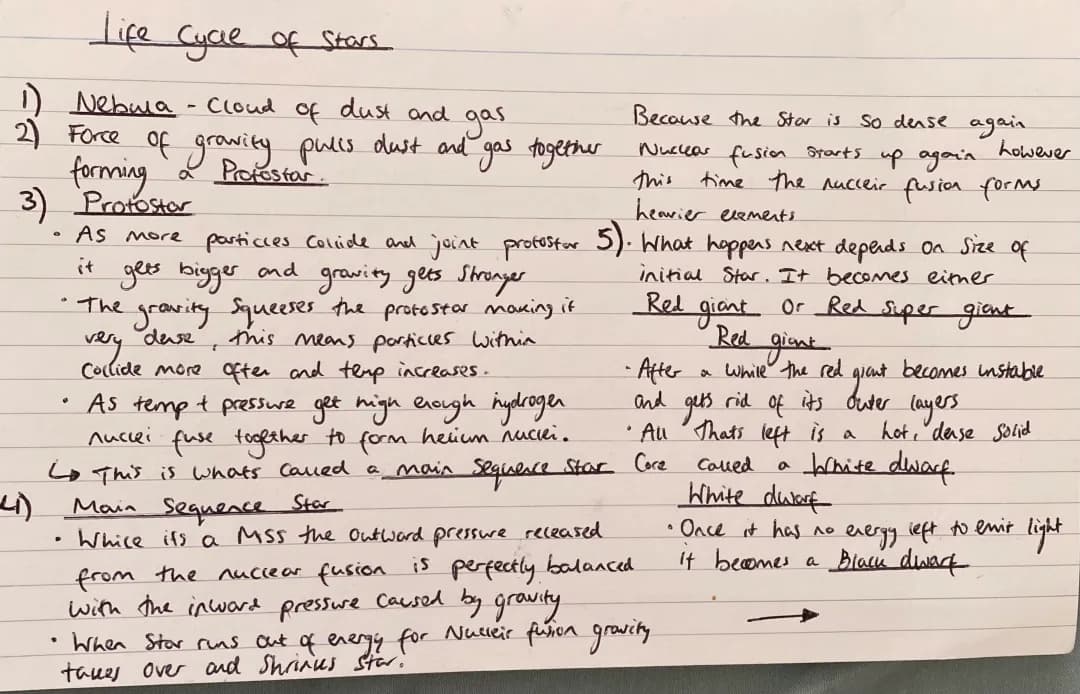 Life Cycle of Stars
1) Nebula - Cloud of dust and gas
2) Force of gravity pulls dust and gas together
forming a Protostar.
3) Protostar
• As more particles collide and joint protostar
it gets bigger and gravity gets stronger
• The gravity squeeses the protostar making it
very dense, this means particles within
collide more often and temp increases.
• As temp + pressure get high enough hydrogen
nuclei fuse together to form helium nuclei.
↳ This is whats called a main sequence star
4) Main Sequence Star
• While its a MSS the outward pressure released
from the nuclear fusion is perfectly balanced
with the inward pressure caused by gravity
• When star runs out of energy for Nucleir fusion gravity
takes over and shrinks star.
Because the star is so dense again
Nuclear fusion starts up again however
this time the nucleir fusion forms
heavier elements
5). What happens next depends on size of
initial star. It becomes either
Red giant or Red super giant
Red giant
• After a while the red giant becomes unstable
and gets rid of its outer layers
• All thats left is a hot, dense solid
Core called a White dwarf.
White dwarf
• Once it has no energy left to emit light
it becomes a Black dwarf
→